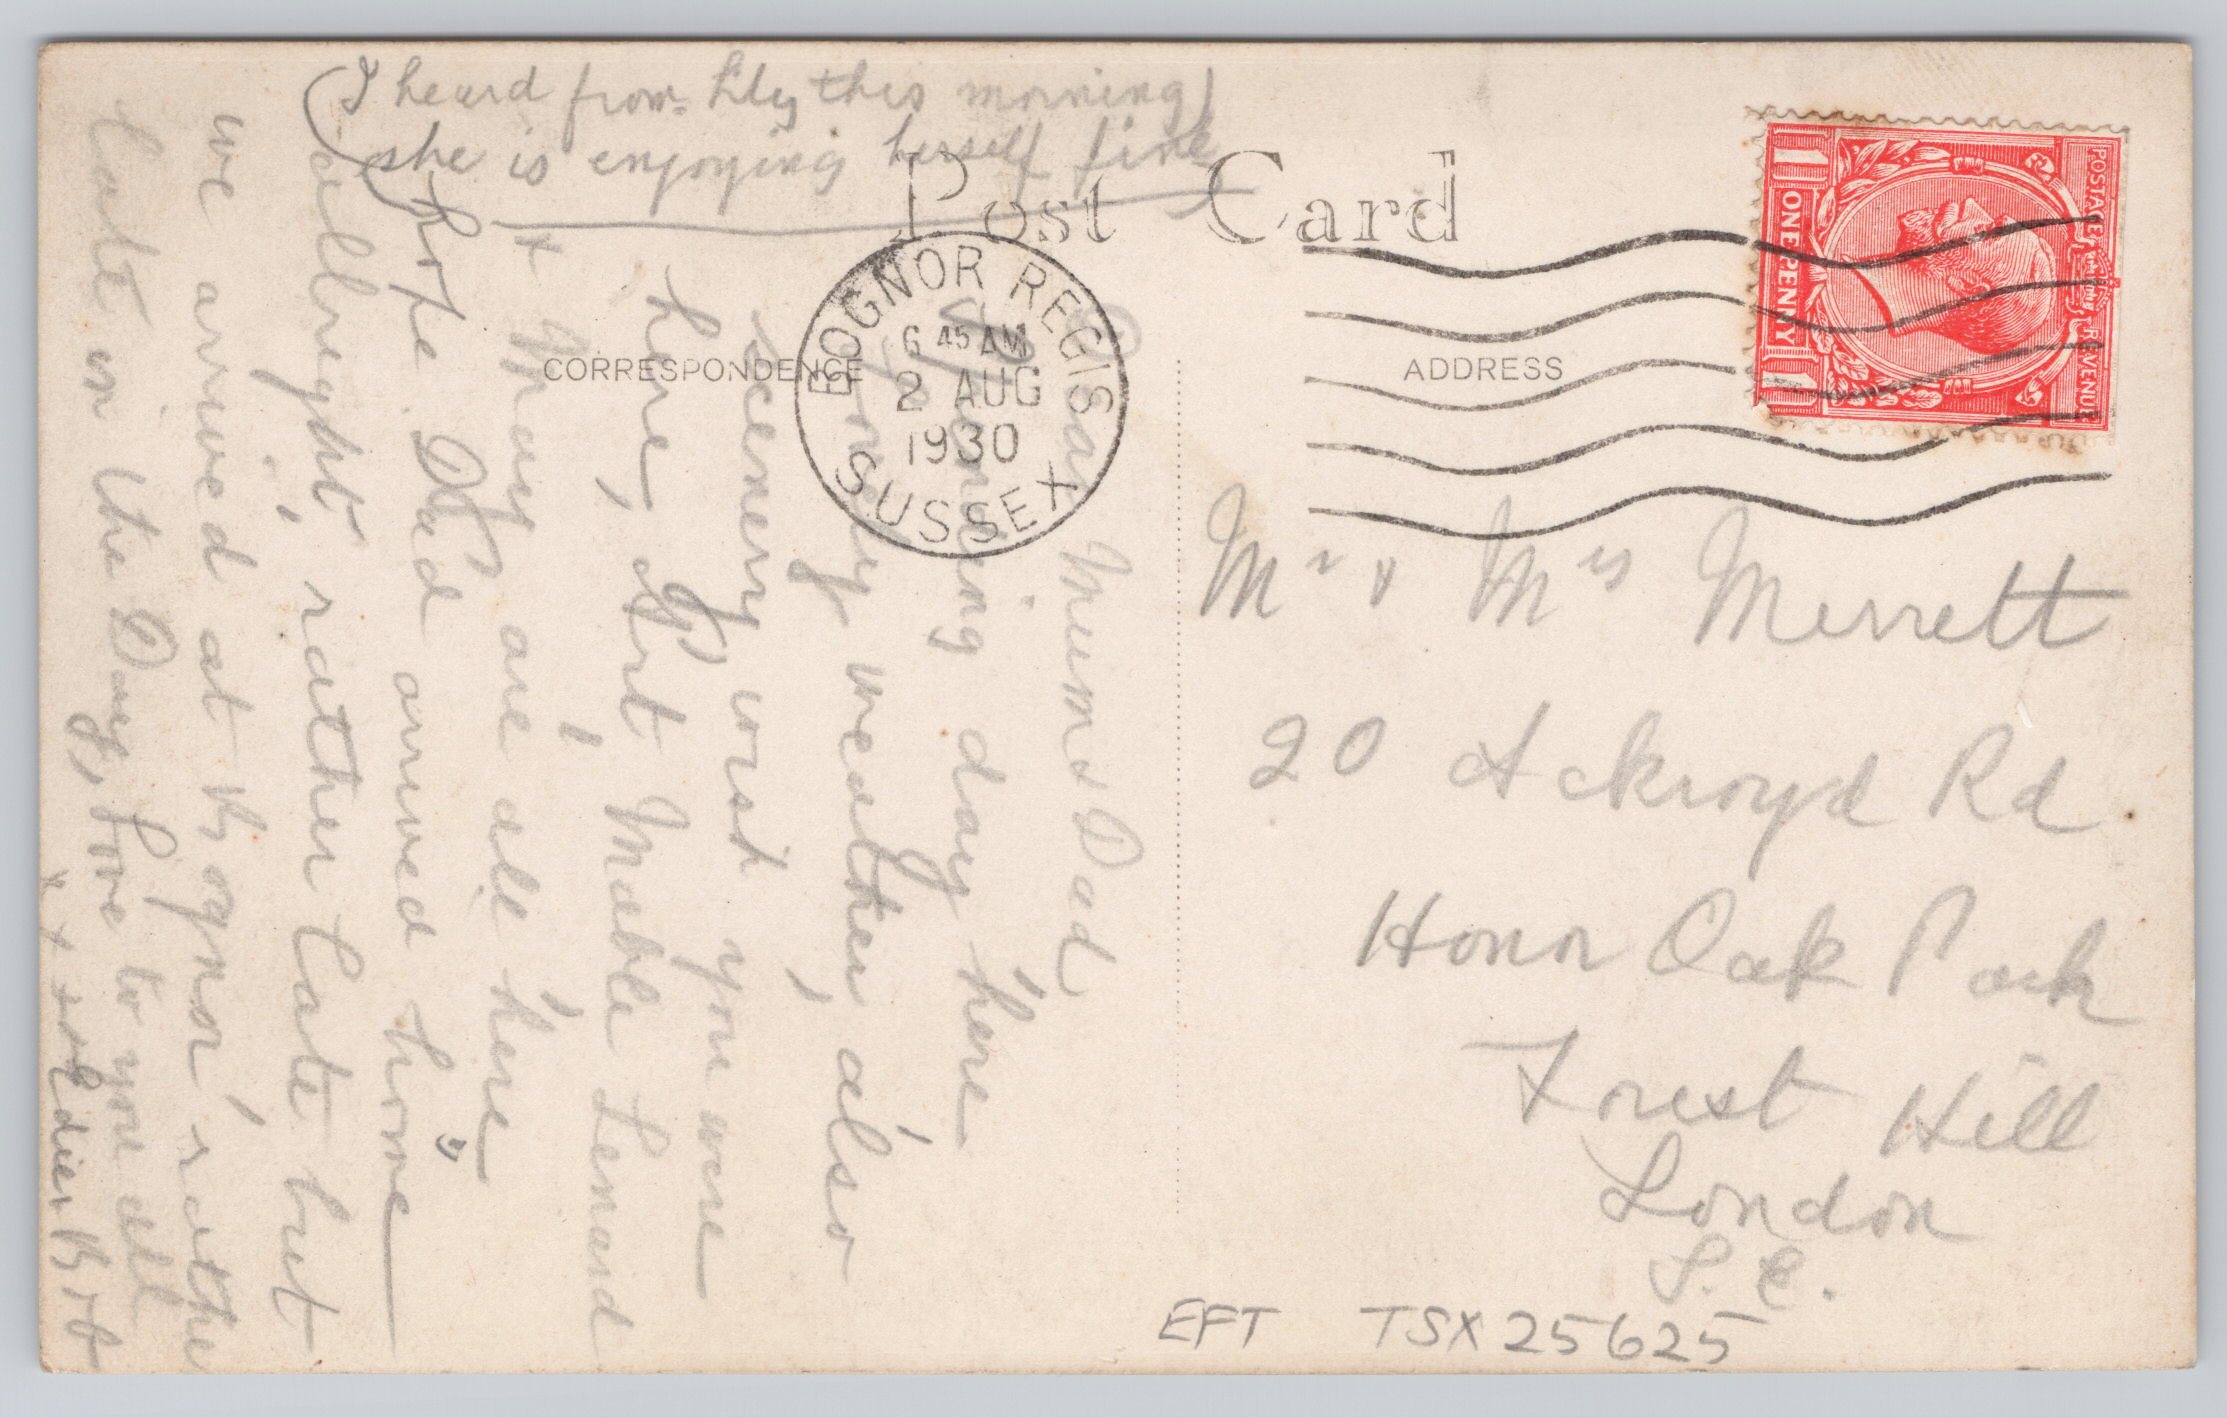 (I heard from Lily this morning)
she is enjoying herself fine
Post Card
CORRESPONDENCE
ADDRESS
BOGNOR REGIS
6 45 AM
2 AUG
1930
SUSSEX
POSTAGE REVENUE
ONE PENNY
Dear Mum & Dad
Spending day here
lovely weather, also
scenery wish you were
here, Art Mable Lenard
+ May are all here
hope Dad arrived home
allright, rather late but
we arrived at Bognor rather
late in the Day, Love to you all
x x x from Edie & Bob
Mr & Mrs Merrett
20 Ackroyd Rd.
Honor Oak Park
Forest Hill
London
S.E.
EFT TSX25625